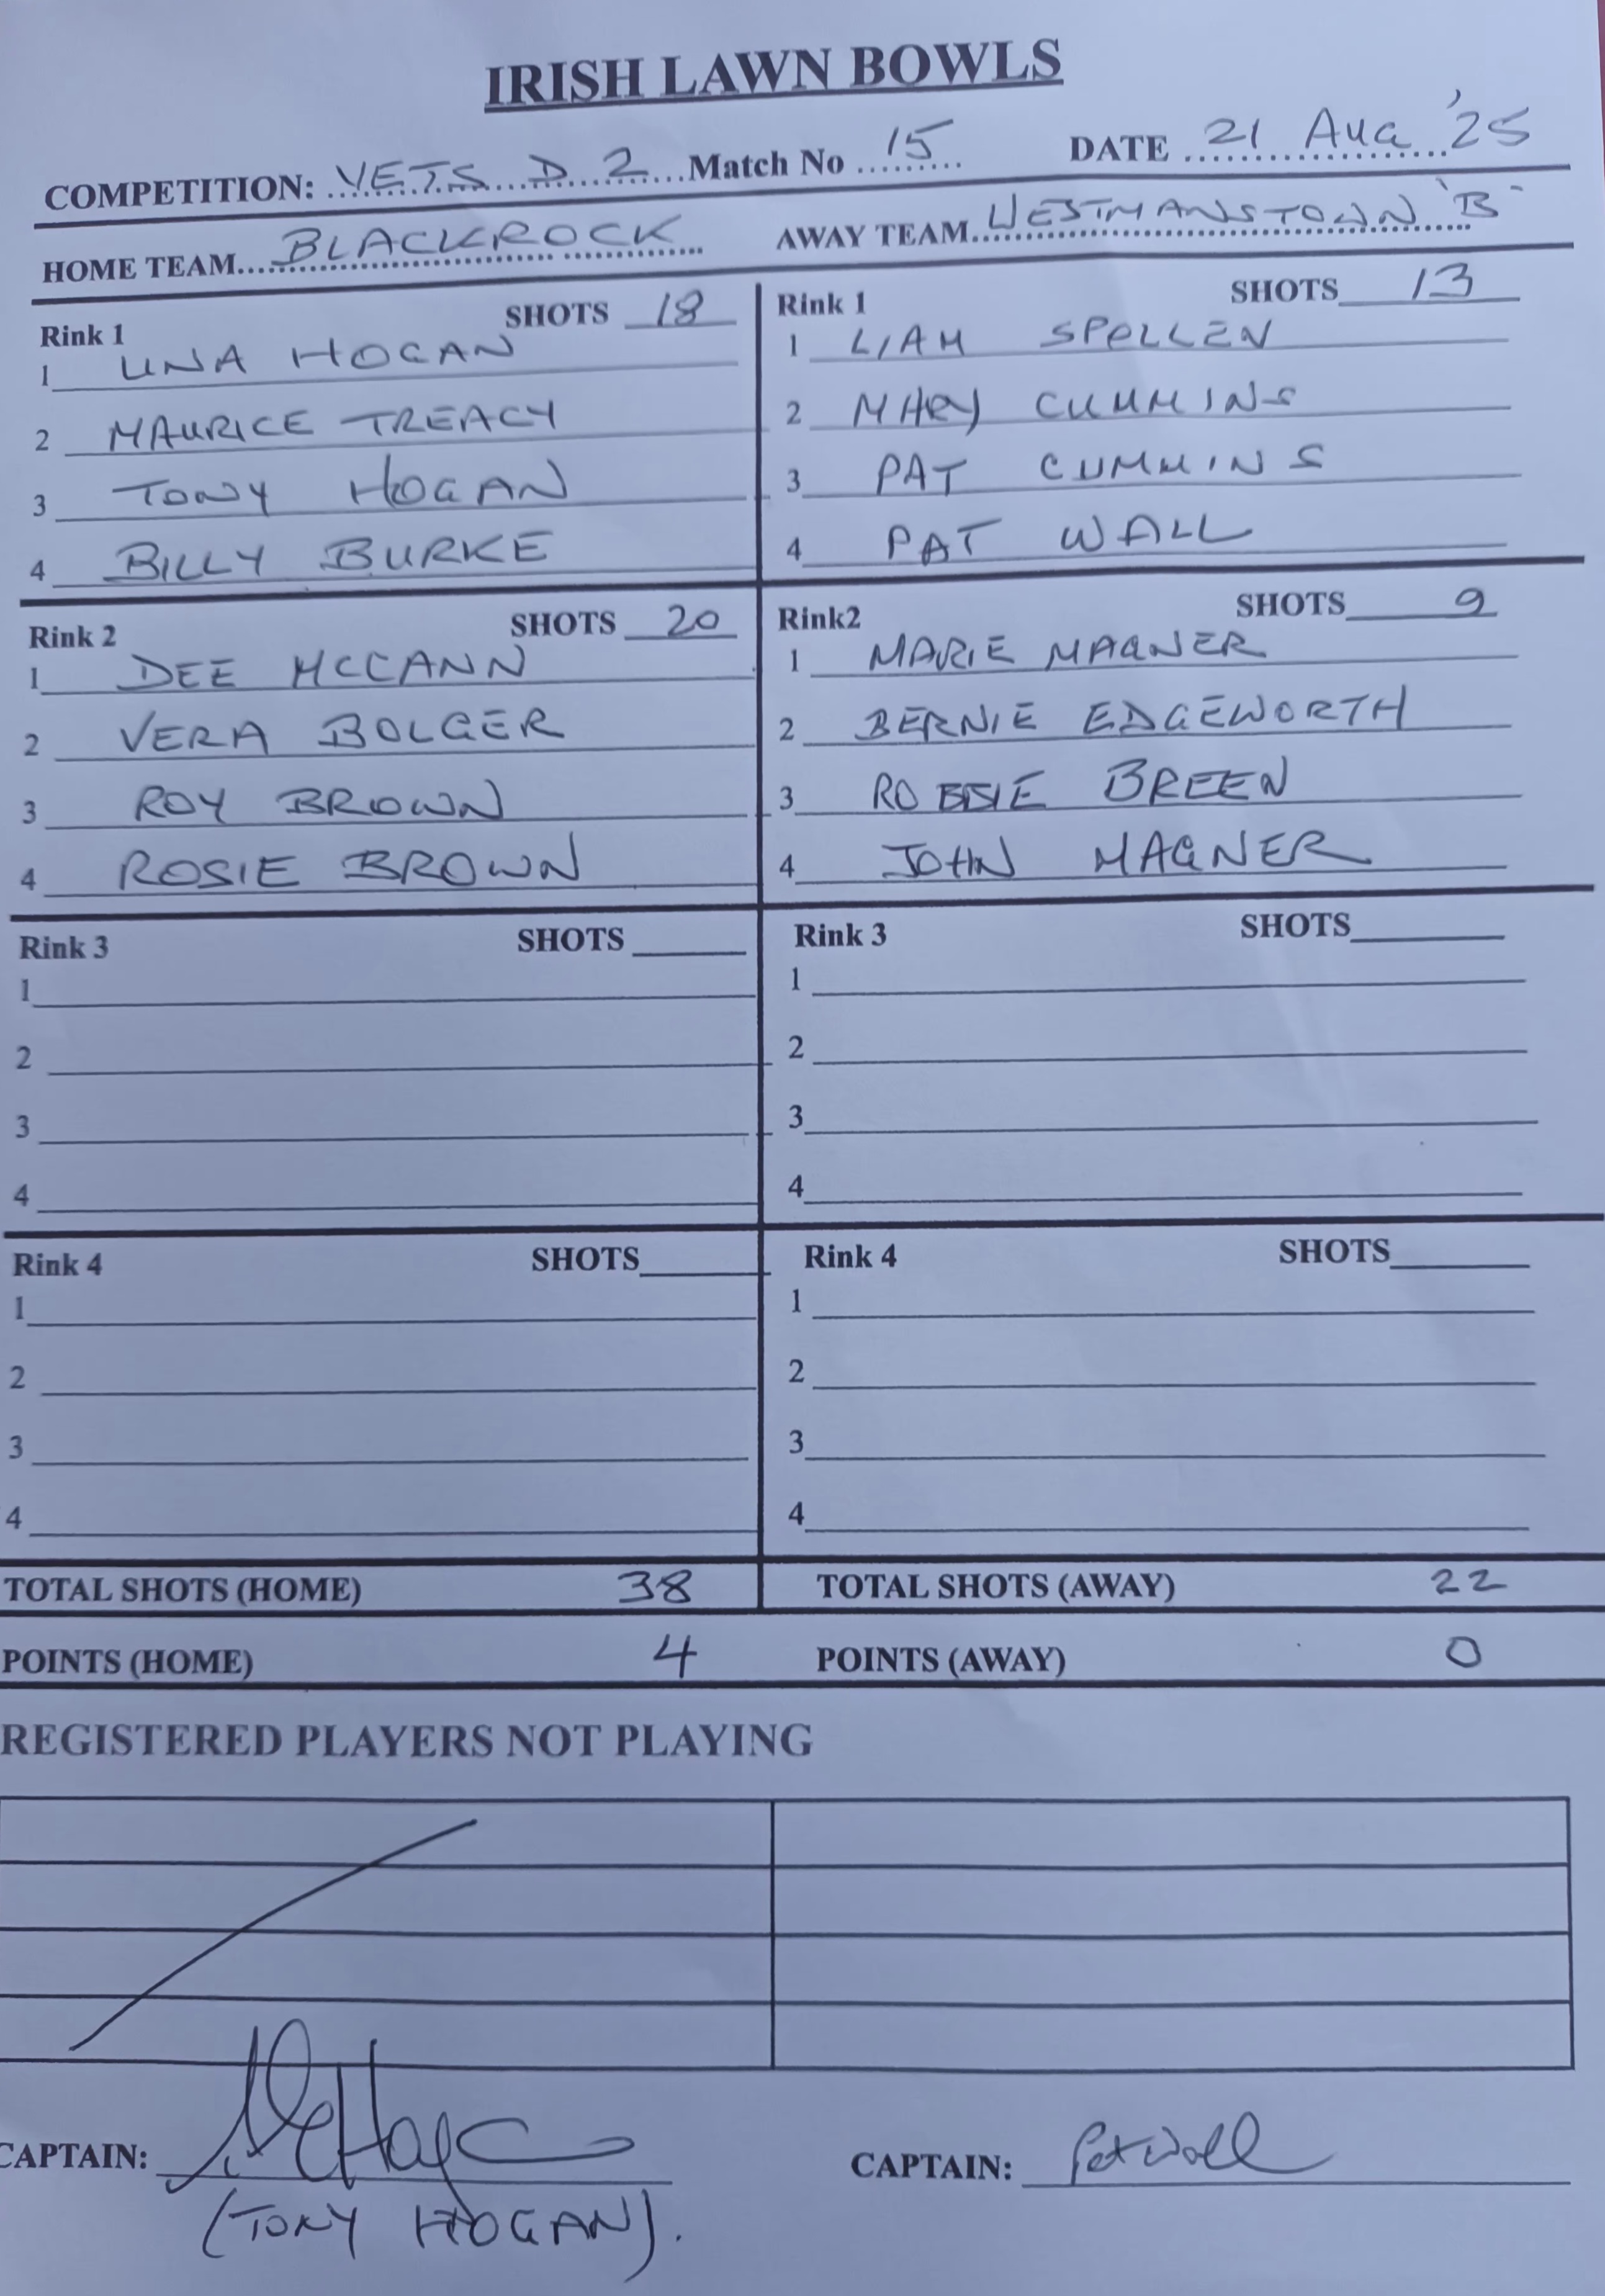 IRISH LAWN BOWLS
COMPETITION: VETS D 2 Match No 15 DATE 21 Aug '25
HOME TEAM BLACKROCK AWAY TEAM WESTMANSTOWN 'B'
Rink 1 SHOTS 18
1 UNA HOGAN
2 MAURICE TREACY
3 TONY HOGAN
4 BILLY BURKE
Rink 1 SHOTS 13
1 LIAM SPOLLEN
2 MARY CUMMINS
3 PAT CUMMINS
4 PAT WALL
Rink 2 SHOTS 20
1 DEE MCCANN
2 VERA BOLGER
3 ROY BROWN
4 ROSIE BROWN
Rink2 SHOTS 9
1 MARIE MAGNER
2 BERNIE EDGEWORTH
3 ROBBIE BREEN
4 JOHN MAGNER
Rink 3 SHOTS
1
2
3
4
Rink 3 SHOTS
1
2
3
4
Rink 4 SHOTS
1
2
3
4
Rink 4 SHOTS
1
2
3
4
TOTAL SHOTS (HOME) 38 TOTAL SHOTS (AWAY) 22
POINTS (HOME) 4 POINTS (AWAY) 0
REGISTERED PLAYERS NOT PLAYING
CAPTAIN: CAPTAIN: Pat Wall
(TONY HOGAN).